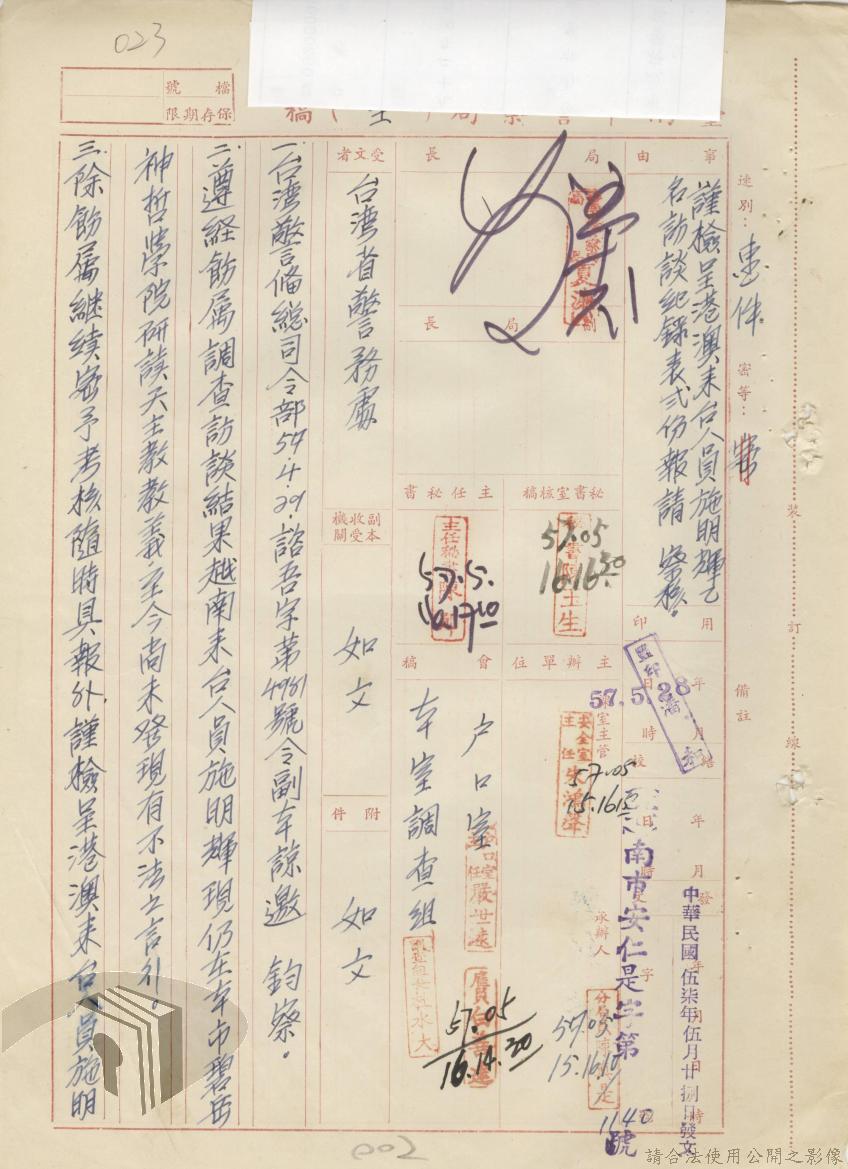 023
檔號
保存期限
稿
速別：
密等：
備註
裝
訂
線
事由
謹檢呈港澳来台人員施明輝乙
名訪談紀錄表弍份報請　察核。
局長
副局長
秘書室核稿
主任秘書
57.05
16.1630
57.5.
16.1710
用印
57.5.28
監印
主辦單位
安全室
主任
57.05
15.1615
承辦人
57.05
15.1610
會稿
户口室
本室調查組
嚴世遠
57.05
16.14.20
南市安仁是字第
1140
號
中華民國伍柒年伍月廿捌日發文
受文者
台湾省警務處
副本收受機關
如文
附件
如文
一、台湾警備総司令部57.4.29.諮吾字第4951號令副本諒邀　鈞察。
二、遵経飭属調查訪談結果越南来台人員施明輝現仍在本市碧岳
神哲學院研讀天主教教義，至今尚未發現有不法之言行。
三、除飭属継續密予考核隨時具報外，謹檢呈港澳来台人員施明
002
請合法使用公開之影像